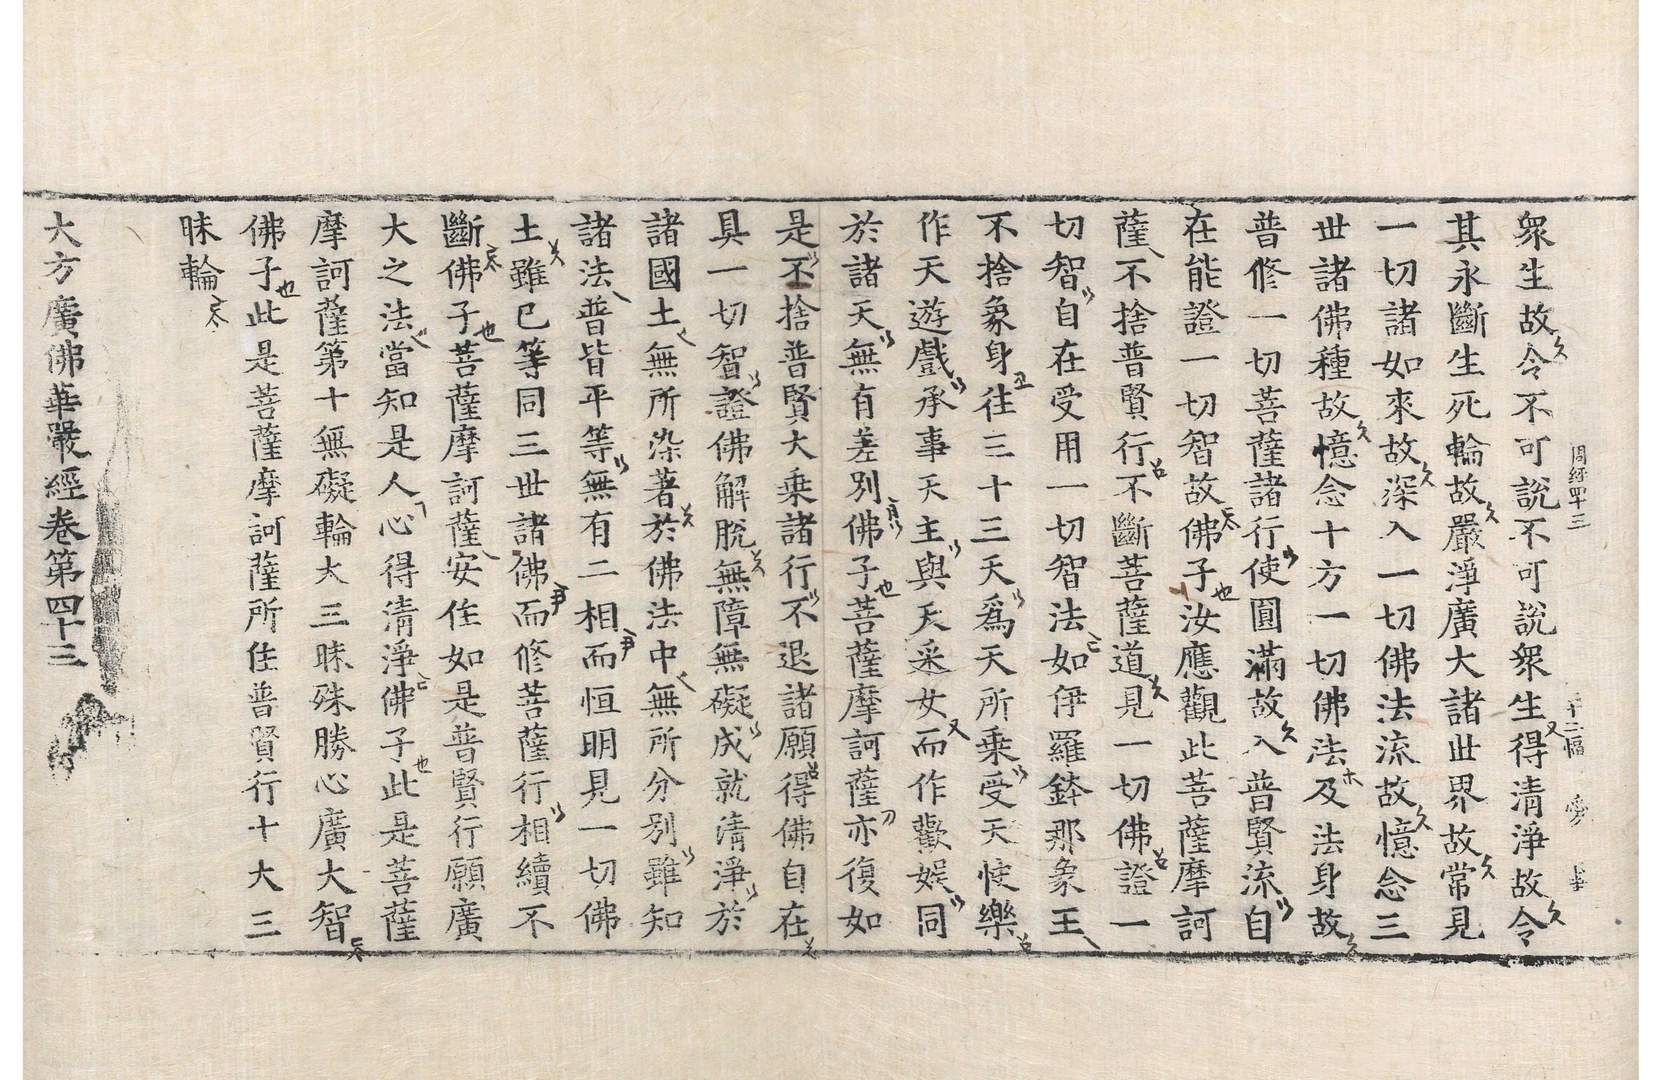 周經四十三
衆生故令不可說不可說衆生得清淨故令
其永斷生死輪故嚴淨廣大諸世界故常見
一切諸如來故深入一切佛法流故憶念三
世諸佛種故憶念十方一切佛法及法身故
普修一切菩薩諸行使圓滿故入普賢流自
在能證一切智故佛子汝應觀此菩薩摩訶
薩不捨普賢行不斷菩薩道見一切佛證一
切智自在受用一切智法如伊羅鉢那象王
不捨象身往三十三天爲天所乘受天快樂
作天遊戲承事天主與天采女而作歡娛同
於諸天無有差別佛子菩薩摩訶薩亦復如
是不捨普賢大乘諸行不退諸願得佛自在
具一切智證佛解脫無障無礙成就清淨於
諸國土無所染著於佛法中無所分別雖知
諸法普皆平等無有二相而恒明見一切佛
土雖已等同三世諸佛而修菩薩行相續不
斷佛子菩薩摩訶薩安住如是普賢行願廣
大之法當知是人心得清淨佛子此是菩薩
摩訶薩第十無礙輪大三昧殊勝心廣大智
佛子此是菩薩摩訶薩所住普賢行十大三
昧輪
大方廣佛華嚴經卷第四十三